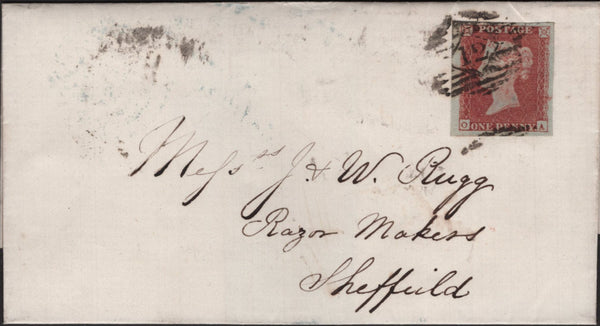 POSTAGE
ONE PENNY
O A
Mess^rs J. & W. Rugg
Razor Makers
Sheffield